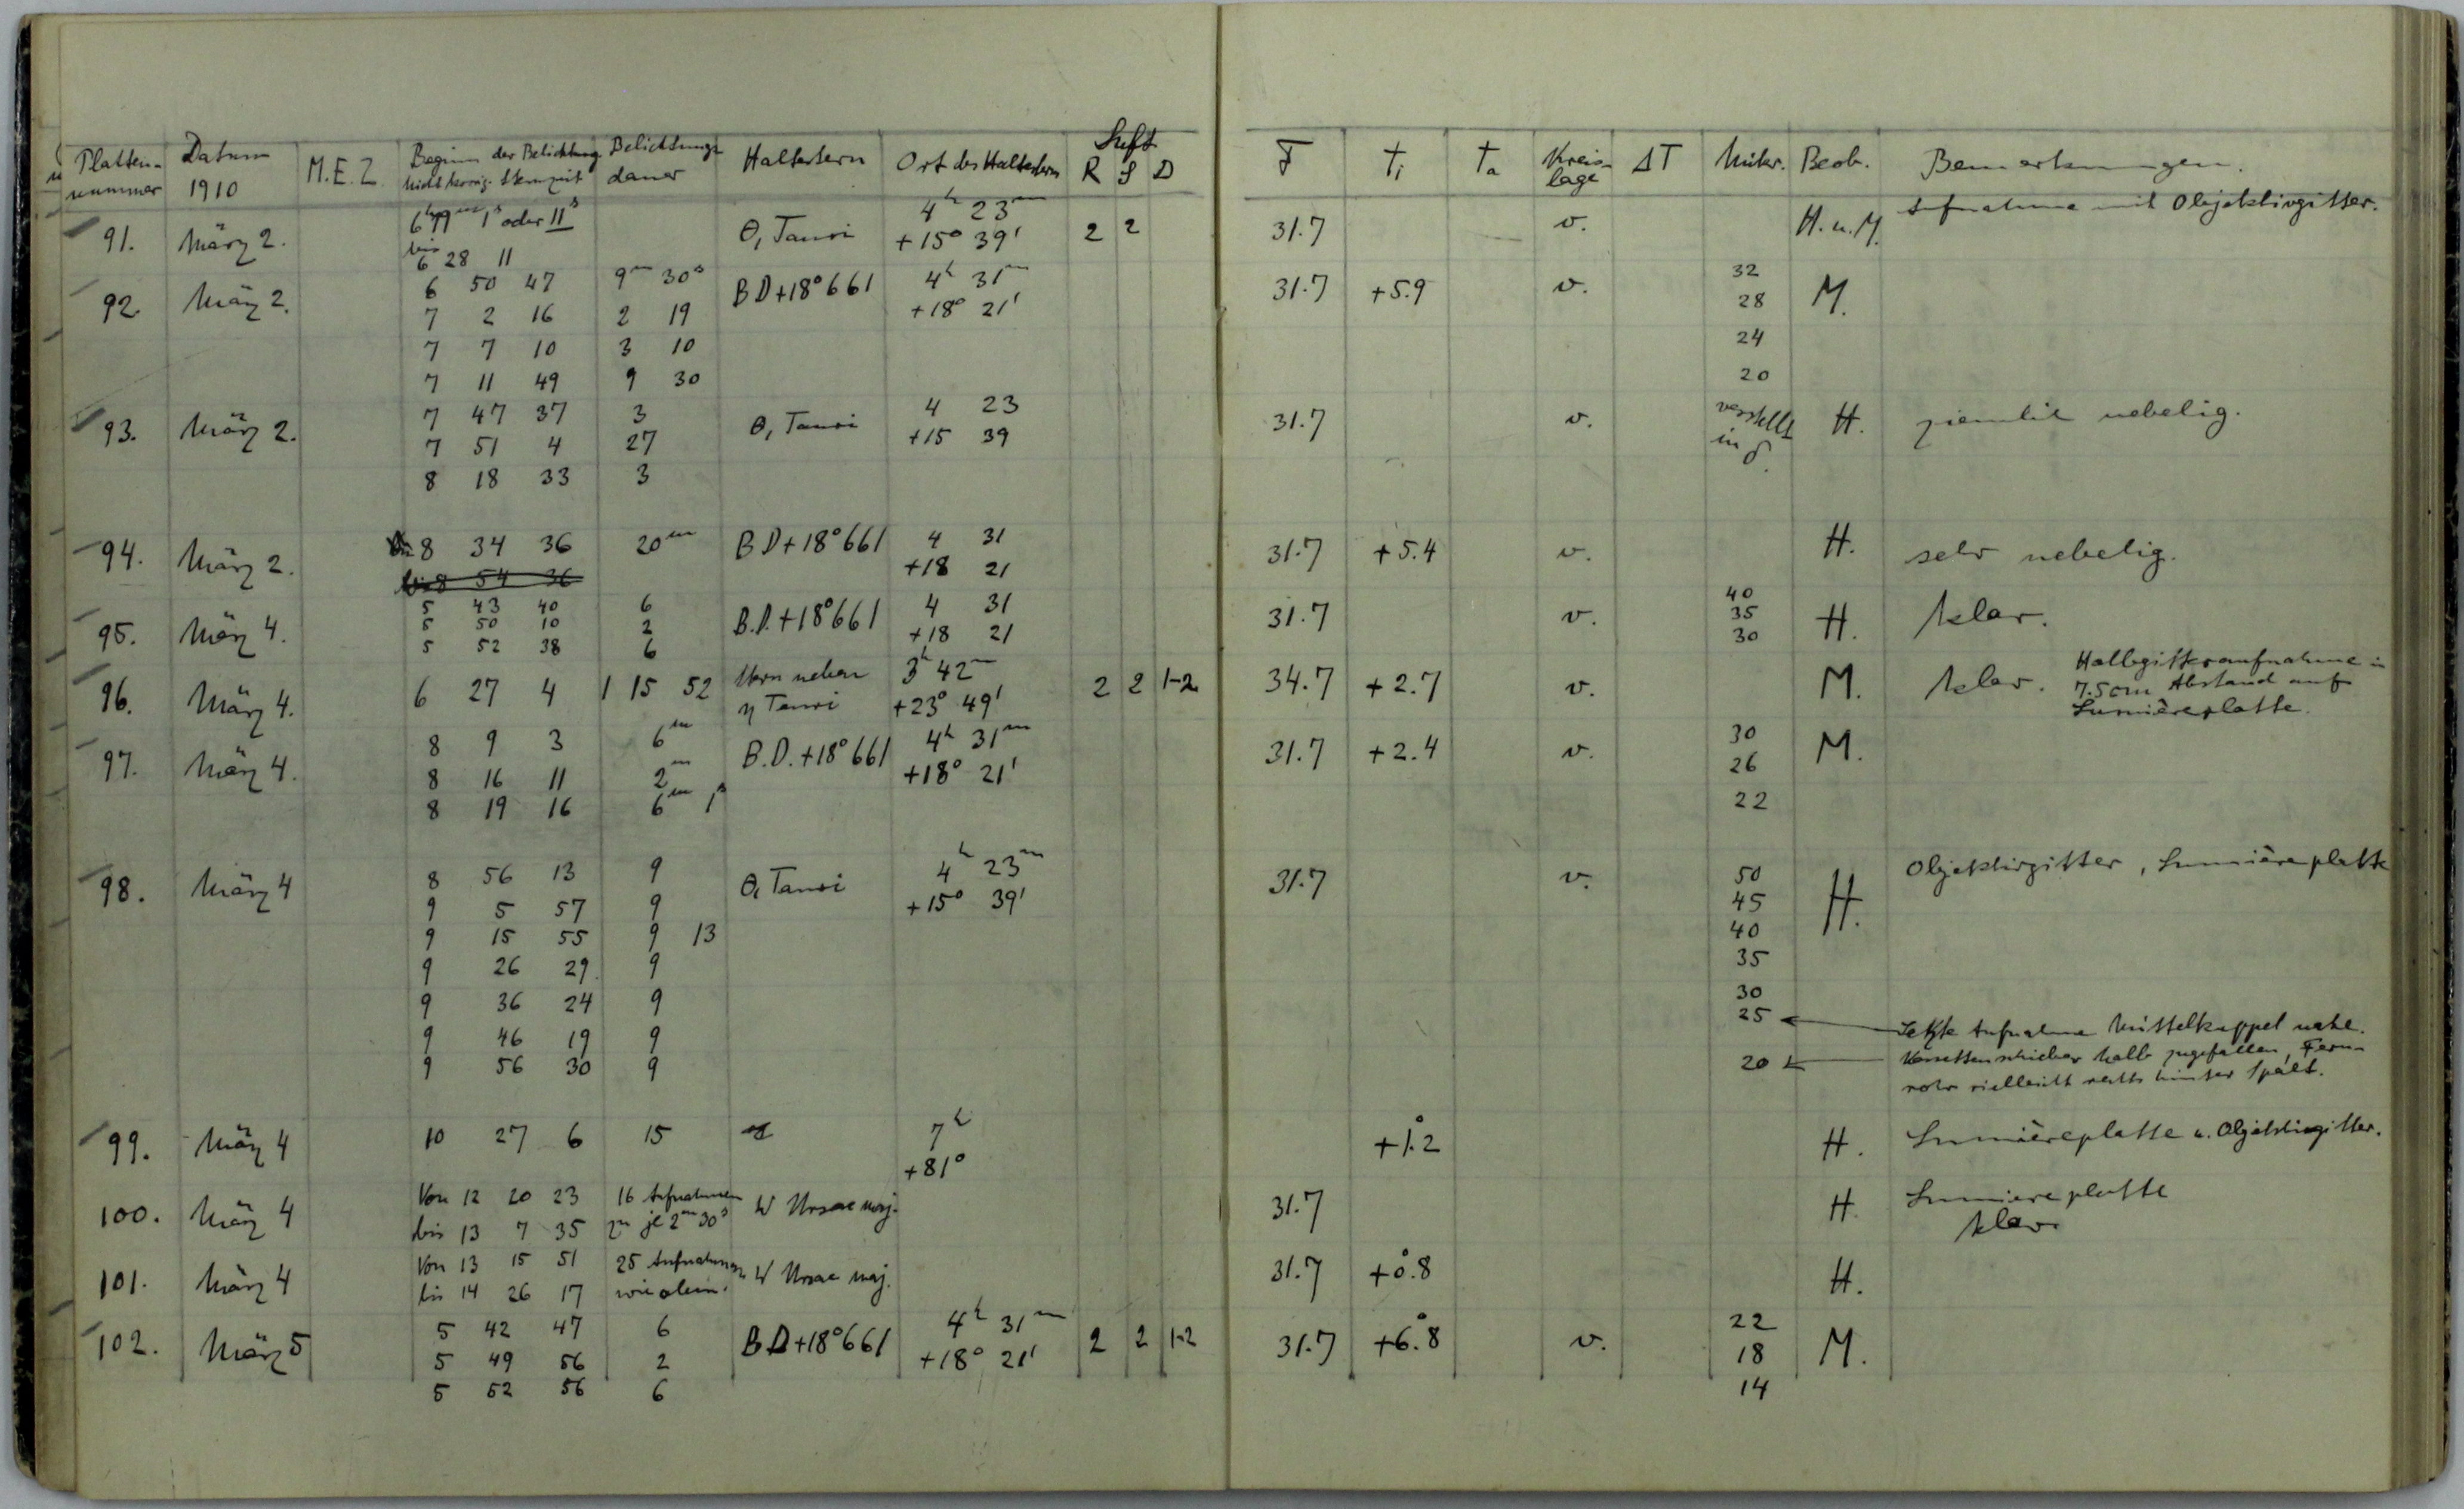 Luft
Platten- Datum M.E.Z. Beginn der Belichtung Belichtungs Haltestern Ort des Haltesterns R S D F Ti Ta Kreis- ΔT Mikr. Beob. Bemerkungen.
nummer 1910 nicht korrig. Sternzeit dauer lage
91. März 2. 6h 19m 1s oder 11s Θ, Tauri 4h 23m 2 2 31.7 v. H. u. M. Aufnahme mit Objektivgitter.
bis 6 28 11 +15° 39'
92. März 2. 6 50 47 9m 30s BD+18°661 4h 31m 31.7 +5.9 v. 32 M.
7 2 16 2 19 +18° 21' 28
7 7 10 3 10 24
7 11 49 9 30 20
93. März 2. 7 47 37 3 Θ, Tauri 4 23 31.7 v. verstellt H. ziemlich nebelig.
7 51 4 27 +15 39 in δ.
8 18 33 3
94. März 2. 8 34 36 20m BD+18°661 4 31 31.7 +5.4 v. H. sehr nebelig.
bis 8 54 36 +18 21
95. März 4. 5 43 40 6 B.D.+18°661 4 31 31.7 v. 40 H. klar.
5 50 10 2 +18 21 35
5 52 38 6 30
96. März 4. 6 27 4 1 15 52 Stern neben 3h 42m 2 2 1-2 34.7 +2.7 v. M. klar. Halbgitteraufnahme in
η Tauri +23° 49' 7.5cm Abstand auf
Lumièreplatte.
97. März 4. 8 9 3 6m B.D.+18°661 4h 31m 31.7 +2.4 v. 30 M.
8 16 11 2m +18° 21' 26
8 19 16 6m 1s 22
98. März 4 8 56 13 9 Θ, Tauri 4h 23m 31.7 v. 50 H. Objektivgitter, Lumièreplatte
9 5 57 9 +15° 39' 45
9 15 55 9 13 40
9 26 29 9 35
9 36 24 9 30
9 46 19 9 25 Letzte Aufnahme Mittelkuppel nahe.
9 56 30 9 20 Kassettenschieber halb zugefallen, Fern-
rohr vielleicht rechts hinter Spalt.
99. März 4 10 27 6 15 7h +1.°2 H. Lumièreplatte u. Objektivgitter.
+81°
100. März 4 Von 12 20 23 16 Aufnahmen W Ursae maj. 31.7 H. Lumiereplatte
bis 13 7 35 zu je 2m 30s klar
101. März 4 Von 13 15 51 25 Aufnahmen W Ursae maj. 31.7 +0.°8 H.
bis 14 26 17 wie oben.
102. März 5 5 42 47 6 BD+18°661 4h 31m 2 2 1-2 31.7 +6.°8 v. 22 M.
5 49 56 2 +18° 21' 18
5 52 56 6 14